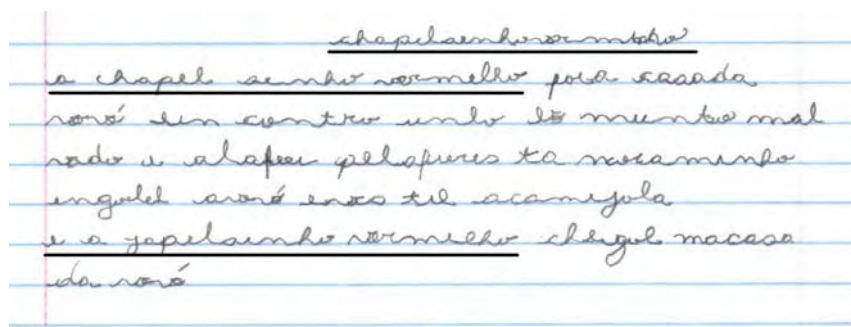 chapelsenhovermioho
a chapel senho vormelho pora casada
vovó ein contro unlo lo muntio mal
vado e alafoi pelafures ta nocaminho
ingolel avovó enves til acamisola
e a japelsinho vormelho chegol macasa
da vovó